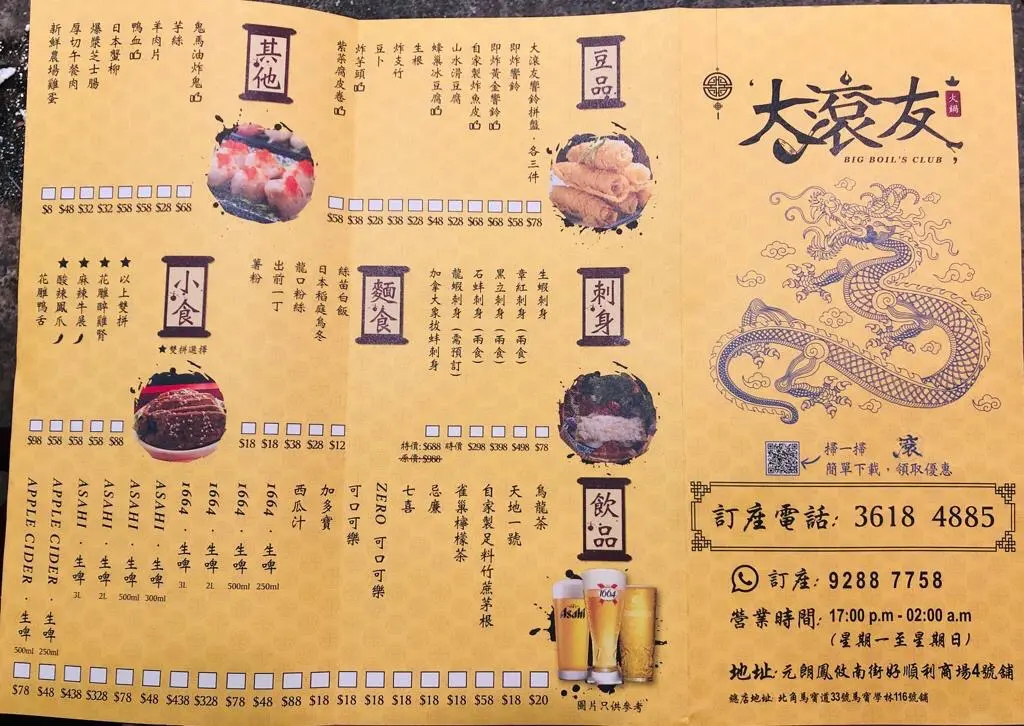 大滾友
火鍋
BIG BOIL'S CLUB
掃一掃 滾
簡單下載，領取優惠
訂座電話: 3618 4885
訂座: 9288 7758
營業時間: 17:00 p.m - 02:00 a.m
(星期一至星期日)
地址: 元朗鳳攸南街好順利商場4號舖
總店地址: 北角馬寶道33號馬寶學林116號舖
豆品
大滾友響鈴拼盤．各三件 $78
即炸響鈴 $58
即炸黃金響鈴 $68
自家製炸魚皮 $68
山水滑豆腐 $28
蜂巢冰豆腐 $48
生根 $28
炸支竹 $38
豆卜 $28
炸芋頭 $38
紫菜腐皮卷 $58
其他
鬼馬油炸鬼 $68
芋絲 $28
羊肉片 $58
鴨血 $58
日本蟹柳 $32
爆漿芝士腸 $32
厚切午餐肉 $48
新鮮農場雞蛋 $8
刺身
生蝦刺身 $78
章紅刺身(兩食) $498
黑立刺身(兩食) $398
石蚌刺身(兩食) $298
龍蝦刺身(需預訂) 時價
加拿大象拔蚌刺身 特價: $688
原價: $988
麵食
絲苗白飯 $12
日本稻庭烏冬 $28
龍口粉絲 $38
出前一丁 $18
薯粉 $18
小食
★雙拼選擇
★以上雙拼 $88
★花雕醉雞腎 $58
★麻辣牛展 $58
★酸辣鳳爪 $58
花雕鴨舌 $98
飲品
烏龍茶 $20
天地一號 $18
自家製足料竹蔗茅根 $58
雀巢檸檬茶 $18
忌廉 $18
七喜 $18
ZERO 可口可樂 $18
可口可樂 $18
加多寶 $18
西瓜汁 $88
1664．生啤 250ml $48
1664．生啤 500ml $78
1664．生啤 2L $328
1664．生啤 3L $438
ASAHI．生啤 300ml $48
ASAHI．生啤 500ml $78
ASAHI．生啤 2L $328
ASAHI．生啤 3L $438
APPLE CIDER．生啤 250ml $48
APPLE CIDER．生啤 500ml $78
Asahi
1664
圖片只供參考